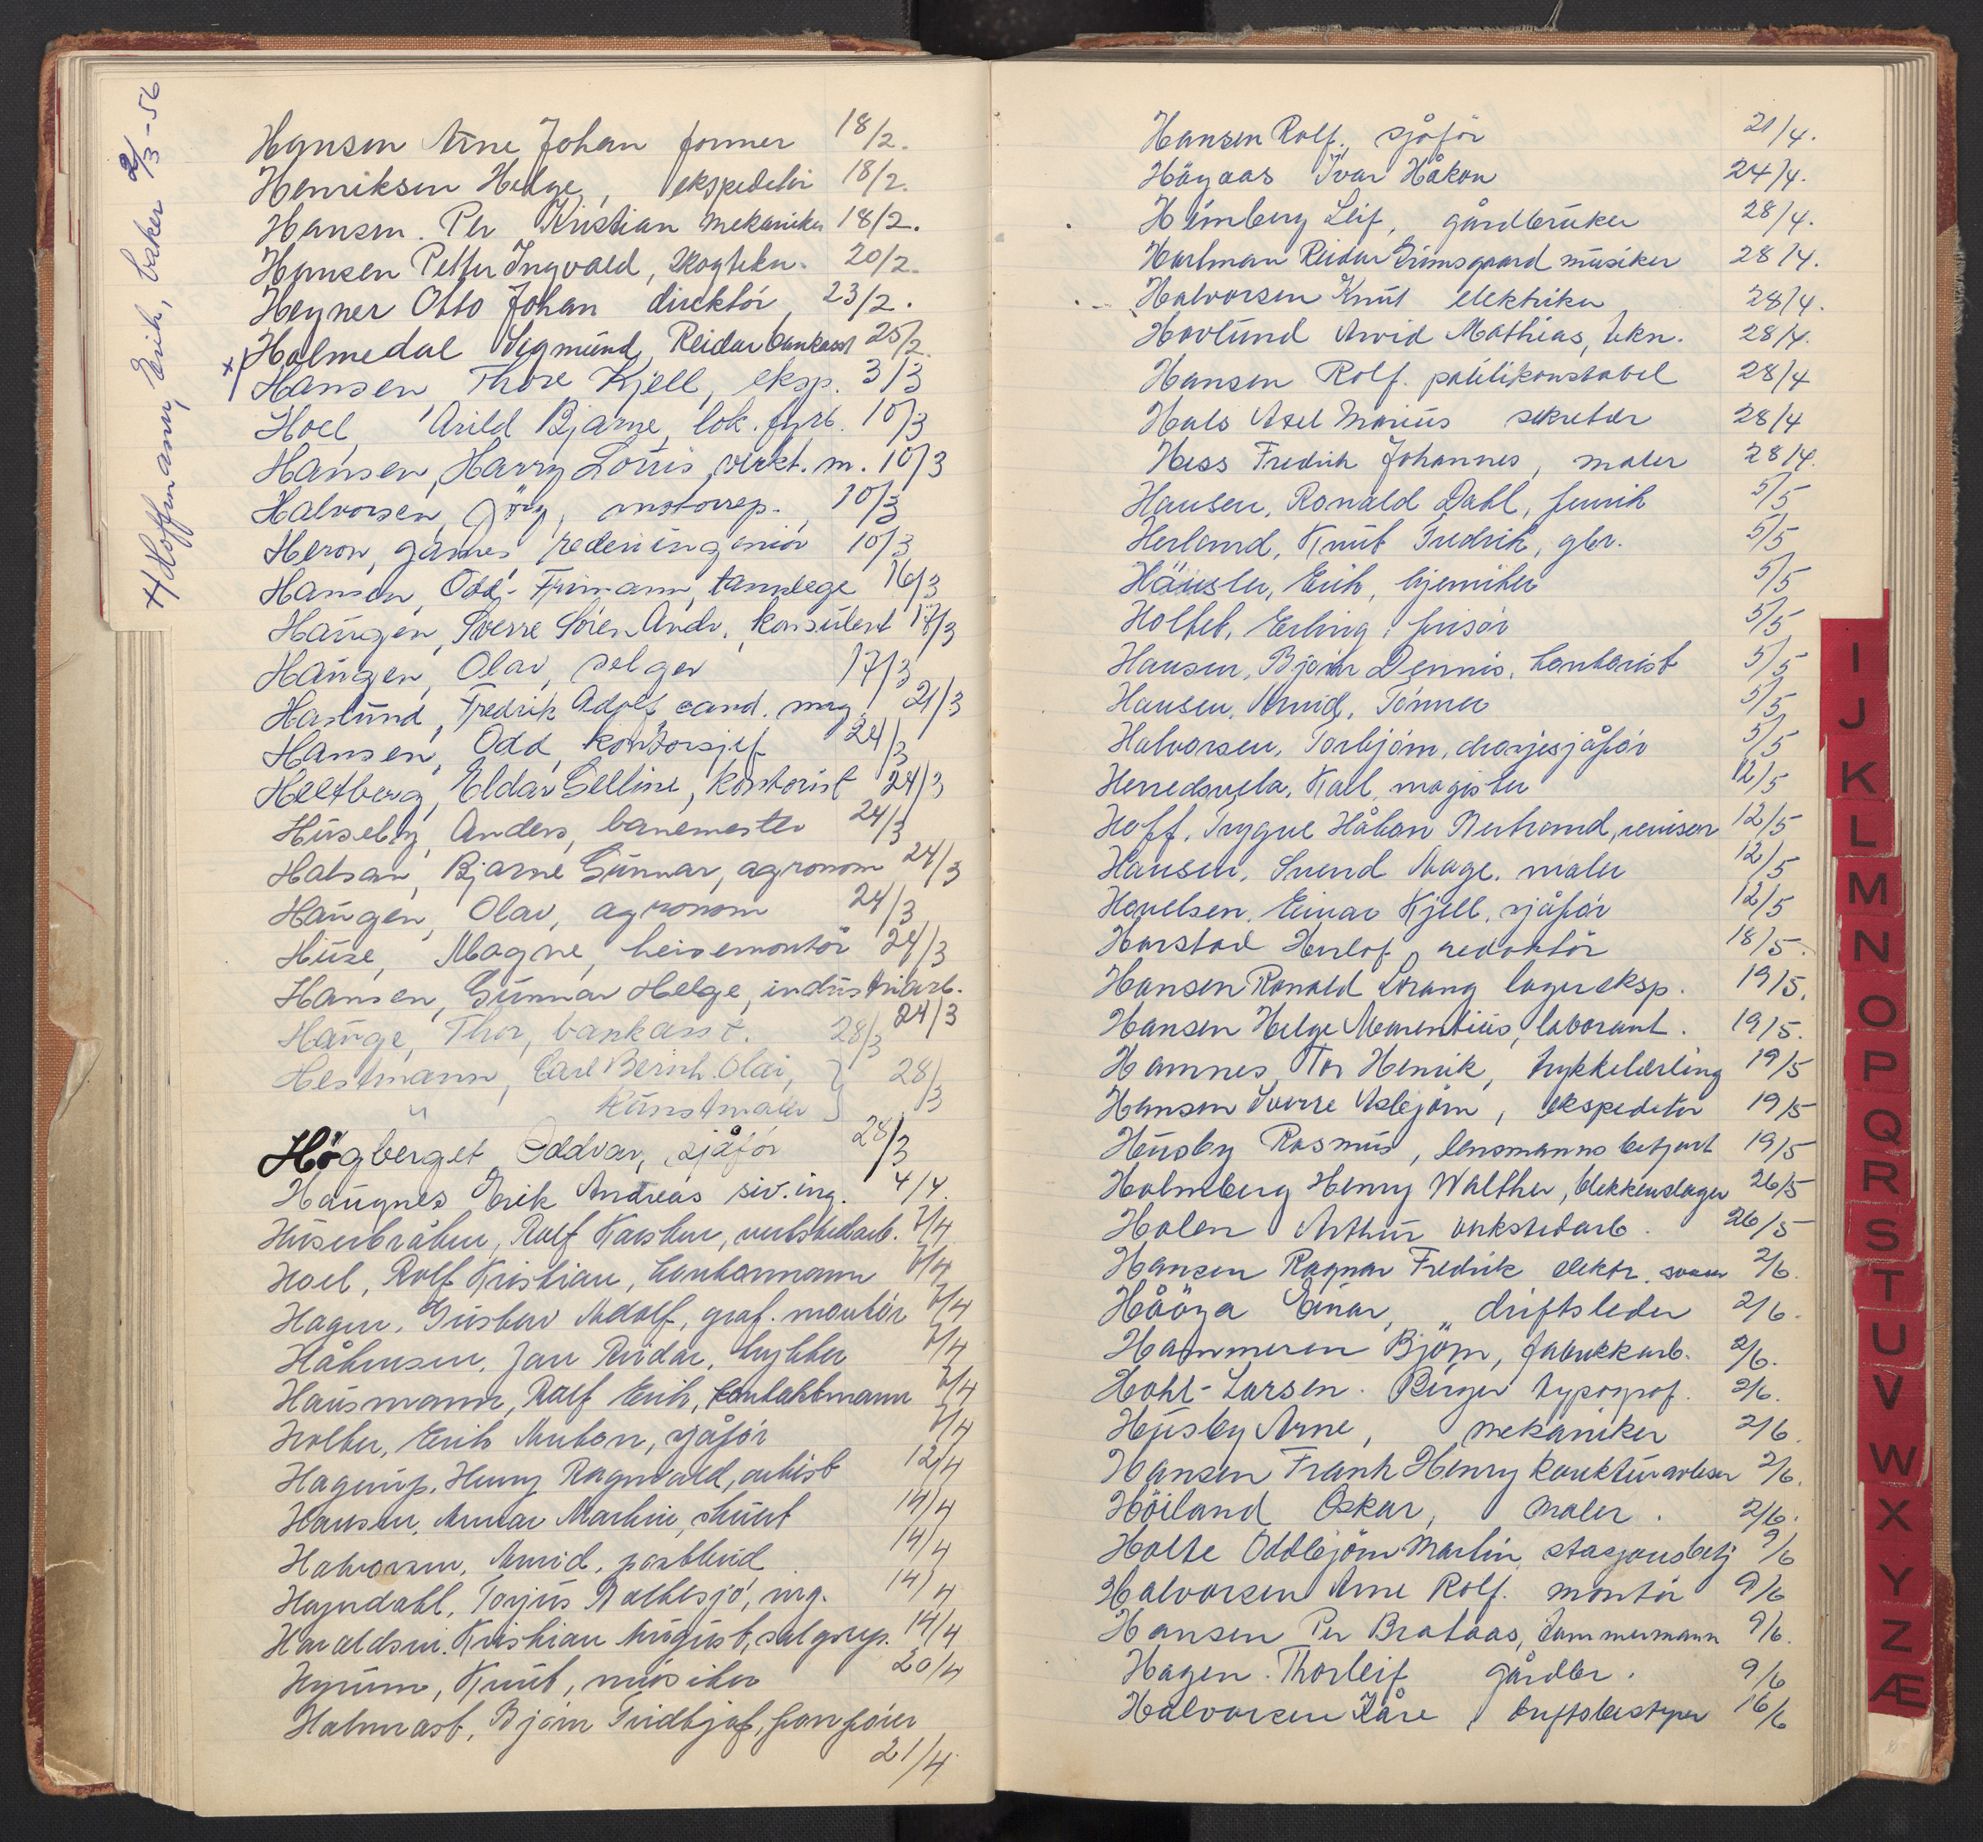 +/ Hoffmann, Erik, baker 2/3-56
Hansen Arne Johan former 18/2.
Henriksen Helge, ekspeditör 18/2.
Hansen. Per Kristian mekaniker 18/2.
Hansen Petter Ingvald, skogtekn. 20/2.
Heyner Otto Johan direktör 23/2.
+/ Holmedal Sigmund Reidar bankass 25/2.
Hansen, Thore Kjell, eksp. 3/3
Hoel, Arild Bjarne, lok. fyrb. 10/3
Hansen, Harry Louis, verkt. m. 10/3
Halvorsen, Jörg, motorrep. 10/3
Heron, James, rederiingeniör 10/3
Hansen, Odd-Frimann, tannlege 16/3
Haugen, Sverre Sören Andr., konsulent 17/3
Haugen, Olav, selger 17/3
Haslund, Fredrik Adolf cand. mag. 21/3
Hansen, Odd, kontorsjef 24/3
Heltberg, Eldar Selline, kontorist 24/3
Huseby, Anders, banemester 24/3
Halsan, Bjarne Gunnar, agronom 24/3
Haugen, Olav, agronom 24/3
Huse, Magne, heisemontör 24/3
Hansen, Gunnar Helge, industriarb. 24/3
Hauge, Thor, bankasst. 28/3
Hestmann, Carl Bernh. Olai, } 28/3
kunstmaler }
Högberget Oddvar, sjåför 28/3
Haugnes Erik Andreas siv.ing. 4/4.
Huserbråten, Rolf Karsten, verkstedarb. 7/4.
Hoel, Rolf Kristian, kontormann 7/4
Hagen, Gustav Adolf, graf. montör 7/4
Håkensen, Jan Reidar, trykker 7/4
Hausmann, Rolf Erik, kontaktmann 7/4
Holter, Erik Anton, sjåför 7/4
Hagerup, Henry Ragnvald, artist 12/4
Hansen, Arnar Martin, stuert 14/4
Halvorsen, Arvid, postbud 14/4
Hayndahl, Torjus, ing. 14/4
Haraldsen. Kristian August, salgrep. 14/4
Hyrum, Knut, musiker 20/4
Halmrast, Bjørn Fridtjof, forniører
21/4.
Hansen Rolf, sjåför 21/4.
Högaas Ivar Håkon 24/4.
Heimberg Leif, gårdbruker 28/4.
Hartman Reidar Grimsgaard musiker 28/4.
Halvorsen Knut elektriker 28/4.
Hovlund Arvid Mathias, tekn. 28/4.
Hansen Rolf. politikonstabel 28/4
Hals Axel Marius sekretær 28/4
Hess Fredrik Johannes, maler 28/4.
Hansen, Ronald Dahl, fenrik 5/5
Herland, Knut Fredrik, gbr. 5/5
Häusler, Erik, kjemiker 5/5
Holtet, Erling, frisör 5/5
Hansen, Bjørn Dennis, kontorist 5/5
Hansen, Arvid, Tömrer 5/5
Halvorsen, Torbjørn, drosjesjåfør 5/5
Herredsvela, Karl, magister 12/5
Hoff, Trygve Håkon Bertrand, revisor 12/5
Hansen, Svend Aage, maler 12/5
Havelsen, Einar Kjell, sjåfør 12/5
Harstad Herlof, redaktör 18/5.
Hansen Ronald Strang lagereksp. 19/5.
Hansen Helge Marentius, laborant. 19/5.
Hamnes Tor Henrik, trykkelærling 19/5
Hansen Sverre Asbjørn, ekspeditör 19/5
Husby Rasmus, lensmannsbetjent 19/5
Holmberg Henry Walther, blekkenslager 26/5
Holen Arthur verkstedarb. 26/5
Hansen Ragnar Fredrik elektr. svenn 2/6.
Hååya Einar, driftsleder 2/6.
Hammeren Björn, fabrikkarb. 2/6.
Hohl-Larsen. Birger typograf. 2/6.
Husby Arne, mekaniker 2/6.
Hansen Frank Henry korrekturavleser 2/6.
Höiland Oskar, maler. 2/6.
Holte Oddbjörn Martin, stasjonsbetj 9/6
Halvorsen Arne Rolf. montör 9/6
Hansen Per Brataas, tømmermann 9/6.
Hagen. Thorleif gårdbr. 9/6
Halvorsen Kåre, driftsbestyrer 16/6
I
J
K
L
M
N
O
P
Q
R
S
T
U
V
W
X
Y
Z
Æ